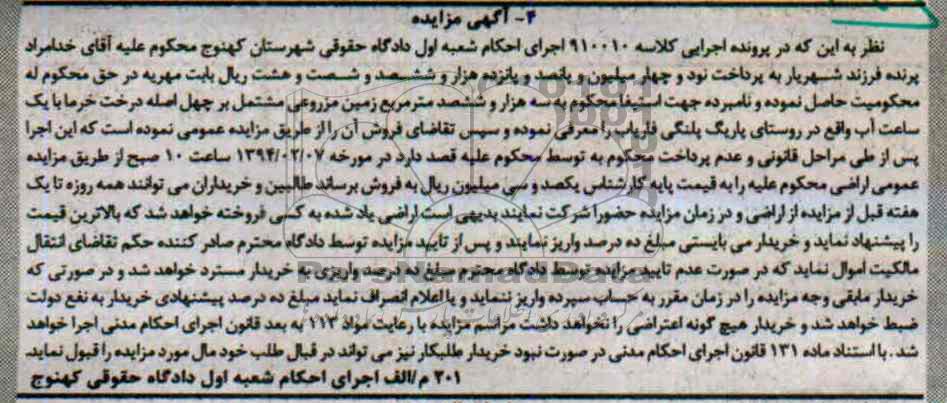 ۴- آگهی مزایده
نظر به این که در پرونده اجرایی کلاسه ۹۱۰۰۱۰ اجرای احکام شعبه اول دادگاه حقوقی شهرستان کهنوج محکوم علیه آقای خدامراد
پرنده فرزند شهریار به پرداخت نود و چهار میلیون و پانصد و پانزده هزار و ششصد و شصت و هشت ریال بابت مهریه در حق محکوم له
محکومیت حاصل نموده و نامبرده جهت استیفا محکوم به سه هزار و ششصد مترمربع زمین مزروعی مشتمل بر چهل اصله درخت خرما با یک
ساعت آب واقع در روستای پارنگ پلنگی فاریاب را معرفی نموده و سپس تقاضای فروش آن را از طریق مزایده عمومی نموده است که این اجرا
پس از طی مراحل قانونی و عدم پرداخت محکوم به توسط محکوم علیه قصد دارد در مورخه ۱۳۹۴/۰۲/۰۷ ساعت ۱۰ صبح از طریق مزایده
عمومی اراضی محکوم علیه را به قیمت پایه کارشناس یکصد و سی میلیون ریال به فروش برساند طالبین و خریداران می توانند همه روزه تا یک
هفته قبل از مزایده از اراضی و در زمان مزایده حضورا شرکت نمایند بدیهی است اراضی یاد شده به کسی فروخته خواهد شد که بالاترین قیمت
را پیشنهاد نماید و خریدار می بایستی مبلغ ده درصد واریز نمایند و پس از تایید مزایده توسط دادگاه محترم صادر کننده حکم تقاضای انتقال
مالکیت اموال نماید که در صورت عدم تایید مزایده توسط دادگاه محترم مبلغ ده درصد واریزی به خریدار مسترد خواهد شد و در صورتی که
خریدار مابقی وجه مزایده را در زمان مقرر به حساب سپرده واریز ننماید و یا اعلام انصراف نماید مبلغ ده درصد پیشنهادی خریدار به نفع دولت
ضبط خواهد شد و خریدار هیچ گونه اعتراضی را نخواهد داشت مراسم مزایده با رعایت مواد ۱۱۳ به بعد قانون اجرای احکام مدنی اجرا خواهد
شد. با استناد ماده ۱۳۱ قانون اجرای احکام مدنی در صورت نبود خریدار طلبکار نیز می تواند در قبال طلب خود مال مورد مزایده را قبول نماید.
۲۰۱ م/الف اجرای احکام شعبه اول دادگاه حقوقی کهنوج
ParsNamadData